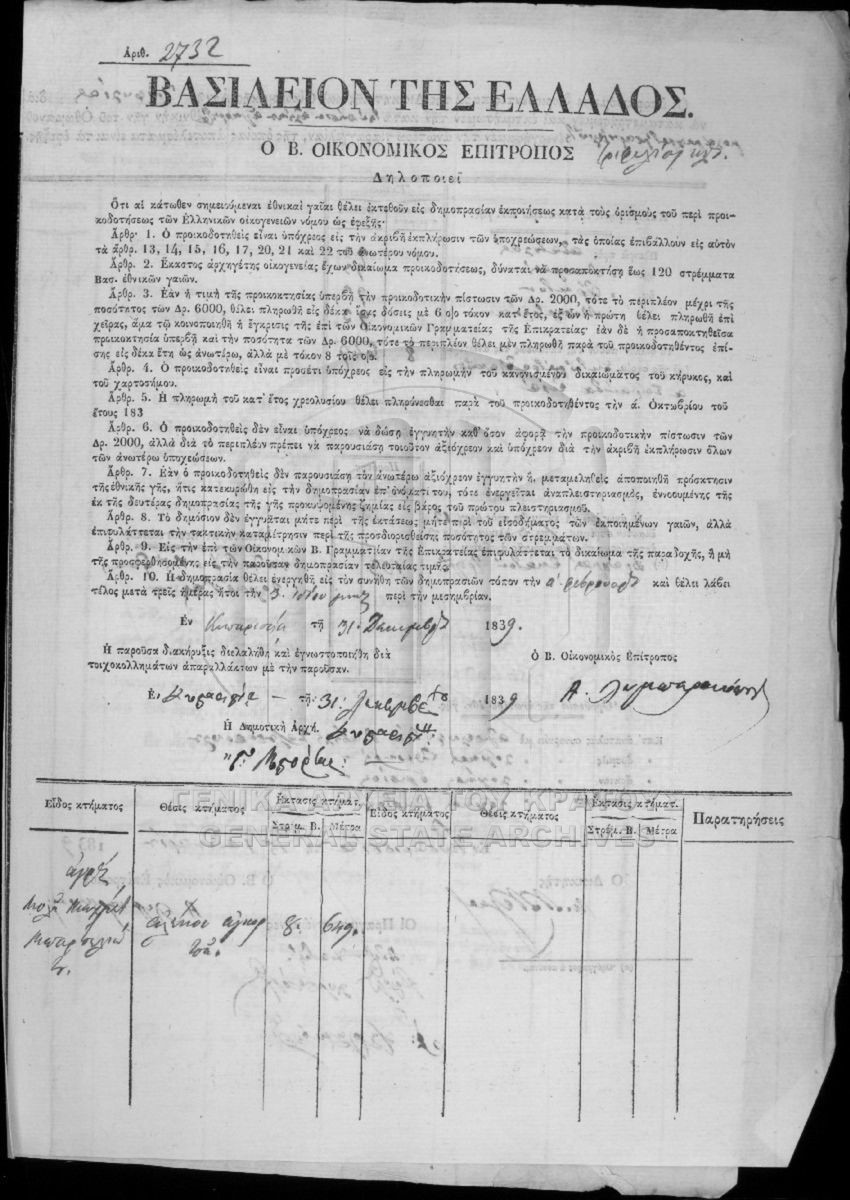 Ἀριθ. 2732
ΒΑΣΙΛΕΙΟΝ ΤΗΣ ΕΛΛΑΔΟΣ.
Ο Β. ΟΙΚΟΝΟΜΙΚΟΣ ΕΠΙΤΡΟΠΟΣ
Δηλοποιεῖ
Ὅτι αἱ κάτωθεν σημειούμεναι ἐθνικαὶ γαῖαι θέλει ἐκτεθοῦν εἰς δημοπρασίαν ἐκποιήσεως κατὰ τοὺς ὁρισμοὺς τοῦ περὶ προι-
κοδοτήσεως τῶν Ἑλληνικῶν οἰκογενειῶν νόμου ὡς ἐφεξῆς·
Ἄρθρ· 1. Ὁ προικοδοτηθεὶς εἶναι ὑπόχρεος εἰς τὴν ἀκριβῆ ἐκπλήρωσιν τῶν ὑποχρεώσεων, τὰς ὁποίας ἐπιβάλλουν εἰς αὐτὸν
τὰ ἄρθρ. 13, 14, 15, 16, 17, 20, 21 καὶ 22 τοῦ ἀνωτέρω νόμου.
Ἄρθρ. 2. Ἕκαστος ἀρχηγέτης οἰκογενείας ἔχων δικαίωμα προικοδοτήσεως, δύναται νὰ προσαποκτήσῃ ἕως 120 στρέμματα
Βασ. ἐθνικῶν γαιῶν.
Ἄρθρ. 3. Ἐὰν ἡ τιμὴ τῆς προικοκτησίας ὑπερβῇ τὴν προικοδοτικὴν πίστωσιν τῶν Δρ. 2000, τότε τὸ περιπλέον μέχρι τῆς
ποσότητος τῶν Δρ. 6000, θέλει πληρωθῆ εἰς δέκα ἴσας δόσεις μὲ 6 ο)ο τόκον κατ' ἔτος, ἐξ ὧν ἡ πρώτη θέλει πληρωθῆ ἐπὶ
χεῖρας, ἅμα τῷ κοινοποιηθῇ ἡ ἔγκρισις τῆς ἐπὶ τῶν Οἰκονομικῶν Γραμματείας τῆς Ἐπικρατείας· ἐὰν δὲ ἡ προσαποκτηθεῖσα
προικοκτησία ὑπερβῇ καὶ τὴν ποσότητα τῶν Δρ. 6000, τότε τὸ περιπλέον θέλει μὲν πληρωθῆ παρὰ τοῦ προικοδοτηθέντος ἐπί-
σης εἰς δέκα ἔτη ὡς ἀνωτέρω, ἀλλὰ μὲ τόκον 8 τοῖς ο)ο.
Ἄρθρ. 4. Ὁ προικοδοτηθεὶς εἶναι προσέτι ὑπόχρεος εἰς τὴν πληρωμὴν τοῦ κανονισμένου δικαιώματος τοῦ κήρυκος, καὶ
τοῦ χαρτοσήμου.
Ἄρθρ. 5. Ἡ πληρωμὴ τοῦ κατ' ἔτος χρεολυσίου θέλει πληρόνεσθαι παρὰ τοῦ προικοδοτηθέντος τὴν ά. Ὀκτωβρίου τοῦ
ἔτους 183
Ἄρθρ. 6. Ὁ προικοδοτηθεὶς δὲν εἶναι ὑπόχρεος νὰ δώσῃ ἐγγυητὴν καθ' ὅσον ἀφορᾷ τὴν προικοδοτικὴν πίστωσιν τῶν
Δρ. 2000, ἀλλὰ διὰ τὸ περιπλέον πρέπει νὰ παρουσιάσῃ τοιοῦτον ἀξιόχρεον καὶ ὑπόχρεον διὰ τὴν ἀκριβῆ ἐκπλήρωσιν ὅλων
τῶν ἀνωτέρω ὑποχεώσεων.
Ἄρθρ. 7. Ἐὰν ὁ προικοδοτηθεὶς δὲν παρουσιάσῃ τὸν ἀνωτέρω ἀξιόχρεον ἐγγυητὴν ἢ, μεταμεληθεὶς ἀποποιηθῇ πρόσκτησιν
τῆς ἐθνικῆς γῆς, ἥτις κατεκυρώθη εἰς τὴν δημοπρασίαν ἐπ' ὀνόματί του, τότε ἐνεργεῖται ἀναπλειστηριασμὸς, ἐννοουμένης τῆς
ἐκ τῆς δευτέρας δημοπρασίας τῆς γῆς προκυψομένης ζημίας εἰς βάρος τοῦ πρώτου πλειστηριασμοῦ.
Ἄρθρ. 8. Τὸ δημόσιον δὲν ἐγγυᾶται μήτε περὶ τῆς ἐκτάσεως μήτε περὶ τοῦ εἰσοδήματος τῶν ἐκποιημένων γαιῶν, ἀλλὰ
ἐπιφυλάττεται τὴν τακτικὴν καταμέτρησιν περὶ τῆς προσδιορισθείσης ποσότητος τῶν στρεμμάτων.
Ἄρθρ. 9. Εἰς τὴν ἐπὶ τῶν Οἰκονομικῶν Β. Γραμματείαν τῆς Ἐπικρατείας ἐπιφυλάττεται τὸ δικαίωμα τῆς παραδοχῆς, ἢ μὴ
τῆς προσφερθησομένης εἰς τὴν παροῦσαν δημοπρασίαν τελευταίας τιμῆς.
Ἄρθρ. 10. Ἡ δημοπρασία θέλει ἐνεργηθῆ εἰς τὸν συνήθη τῶν δημοπρασιῶν τόπον τὴν ά. Φεβρουαρ καὶ θέλει λάβει
τέλος μετὰ τρεῖς ἡμέρας ἤτοι τὴν 3. ἰδίου μηνὸς περὶ τὴν μεσημβρίαν.
Ἐν Κυπαρισσίᾳ τῇ 31. Δεκεμβρ 1839.
Ἡ παροῦσα διακήρυξις διελαλήθη καὶ ἐγνωστοποιήθη διὰ
τοιχοκολλημάτων ἀπαραλλάκτων μὲ τὴν παροῦσαν.
Ὁ Β. Οἰκονομικὸς Ἐπίτροπος
Ἐν Κυπαρισσίᾳ τῇ 31. Δεκεμβρ 1839
Ἡ Δημοτικὴ Ἀρχή.
ΓΕΝΙΚΑ ΑΡΧΕΙΑ ΤΟΥ ΚΡΑΤΟΥΣ
GENERAL STATE ARCHIVES
Εἶδος κτήματος Θέσις κτήματος Ἔκτασις κτήματ. Εἶδος κτήματος Θέσις κτήματος Ἔκτασις κτήματ. Παρατηρήσεις
Στρέμ. Β. Μέτρα Στρέμ. Β. Μέτρα
8. 649.